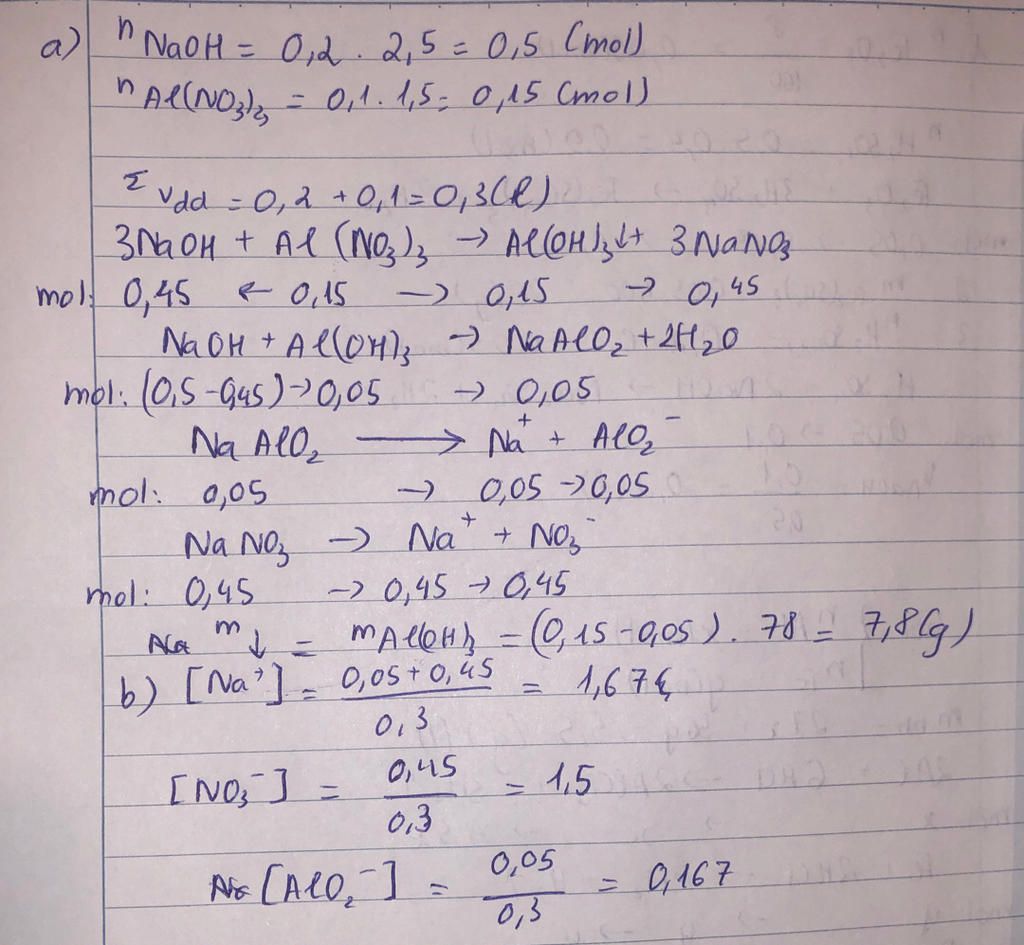 a) nNaOH = 0,2 . 2,5 = 0,5 (mol)
nAl(NO3)3 = 0,1 . 1,5 = 0,15 (mol)
Σ Vdd = 0,2 + 0,1 = 0,3(l)
3NaOH + Al(NO3)3 → Al(OH)3↓ + 3NaNO3
mol: 0,45 ← 0,15 → 0,15 → 0,45
NaOH + Al(OH)3 → NaAlO2 + 2H2O
mol: (0,5 - 0,45) → 0,05 → 0,05
NaAlO2 → Na+ + AlO2-
mol: 0,05 → 0,05 → 0,05
NaNO3 → Na+ + NO3-
mol: 0,45 → 0,45 → 0,45
m↓ = mAl(OH)3 = (0,15 - 0,05) . 78 = 7,8(g)
b) [Na+] = 0,05 + 0,45 / 0,3 = 1,67
[NO3-] = 0,45 / 0,3 = 1,5
[AlO2-] = 0,05 / 0,3 = 0,167